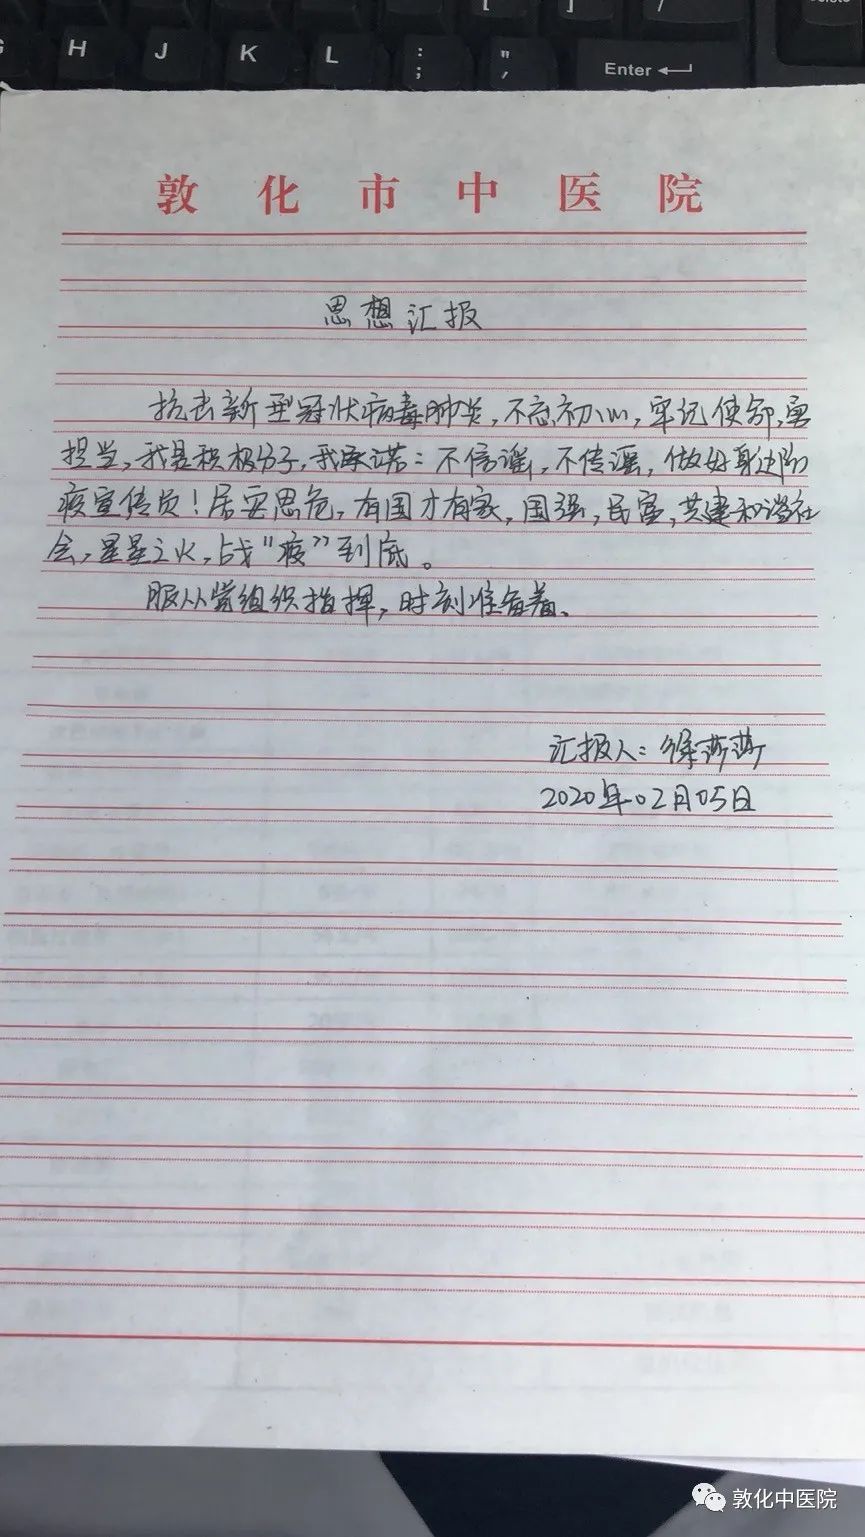 Delete
[ ] /
G H J K L : ; " , Enter
敦化市中医院
思想汇报
抗击新型冠状病毒肺炎,不忘初心,牢记使命,勇
担当,我是积极分子,我承诺:不信谣,不传谣,做好身边防
疫宣传员!居安思危,有国才有家,国强,民富,共建和谐社
会,星星之火,战“疫”到底。
服从党组织指挥,时刻准备着。
汇报人:徐莎莎
2020年02月05日
敦化中医院